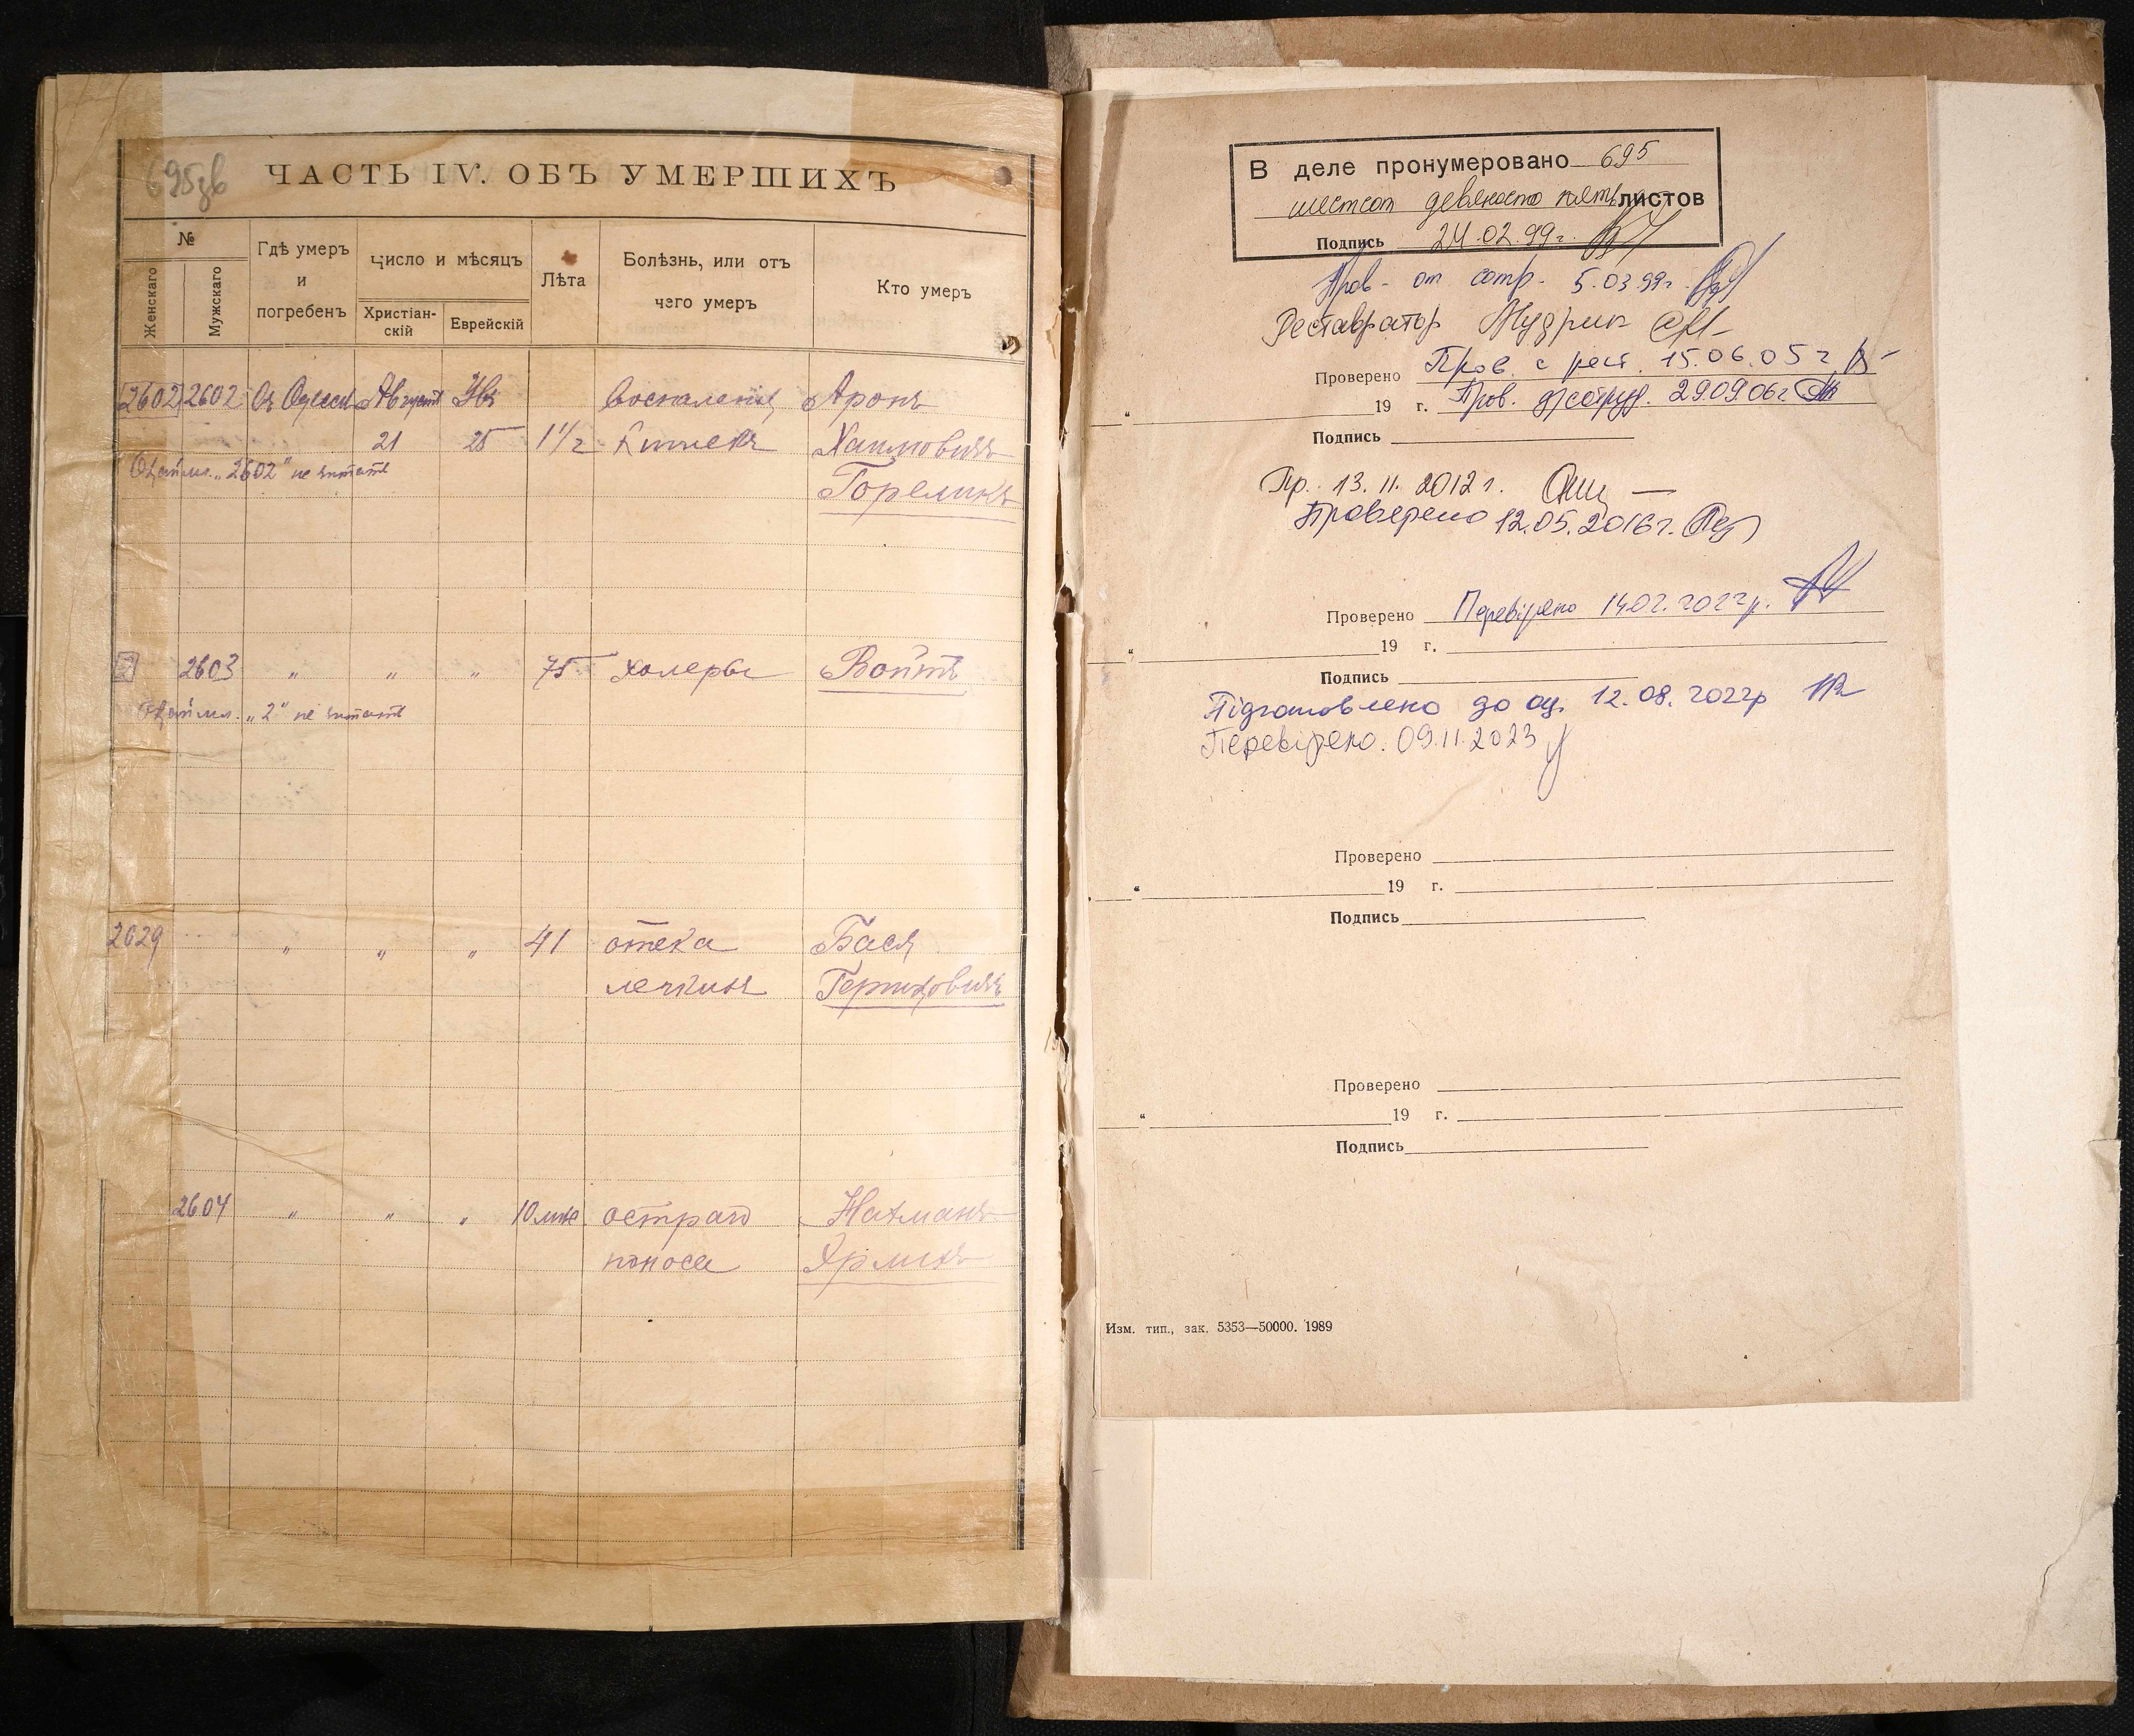 695зв
ЧАСТЬ IV. ОБЪ УМЕРШИХЪ
№
Женскаго
Мужскаго
Гдѣ умеръ
и
погребенъ
Число и мѣсяцъ
Христіан-
скій
Еврейскій
Лѣта
Болѣзнь, или отъ
чего умеръ
Кто умеръ
2602 2602 Въ Одессѣ Августъ Воспаленія Аронъ
21 25 1 1/2 кишекъ Хаимовичъ
"2602" не читать
Гореликъ
2 2603 " " " 75 холеры Войтъ
"2" не читать
2029 " " " 41 отека Бася
легкихъ
2604 " " " 10 остраго Нахманъ
поноса Ярликъ
В деле пронумеровано 695
шестсот девяносто пять листов
Подпись 24.02.99г.
Пров. от сотр. 5.03.99г.
Реставратор Мудрик
Проверено Пров. с рест. 15.06.05г
" 19 г. Пров. 29.09.06г
Подпись
Пр. 13.11.2012г.
Проверено 12.05.2016г.
Проверено Перевірено 14.02.2022р.
" 19 г.
Подпись
Підготовлено до оц. 12.08.2022р
Перевірено. 09.11.2023
Проверено
" 19 г.
Подпись
Проверено
" 19 г.
Подпись
Изм. тип., зак. 5353—50000. 1989